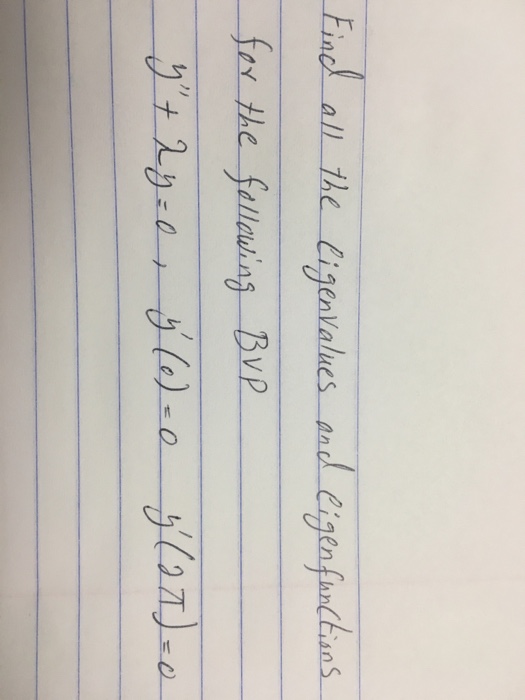 Find all the eigenvalues and eigenfunctions
for the following BVP
y'' + λy = 0, y'(0) = 0 y'(2π) = 0